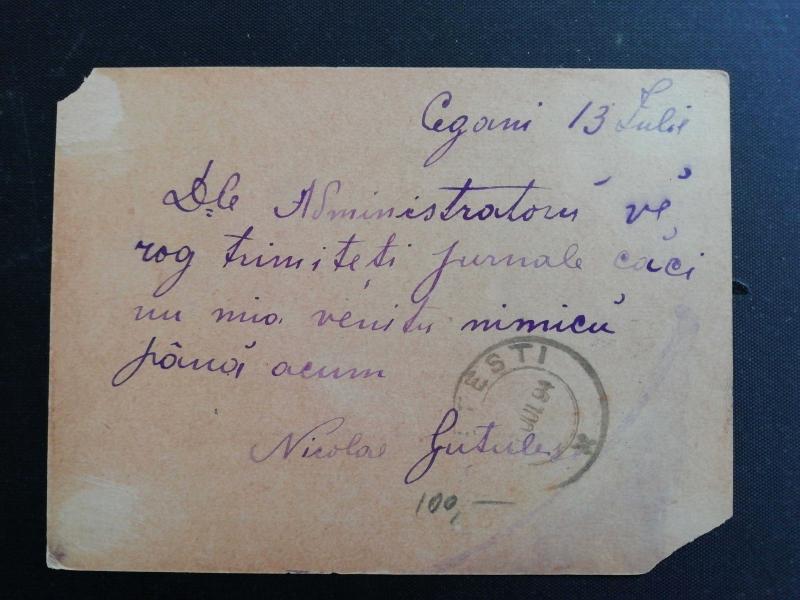 Cegani 13 Iulie
D-le Administratorŭ vĕ
rog trimiteți jurnale căci
nu mia venitu nimicŭ
până acum
Nicolae
ESTI
IUL 94
100,—